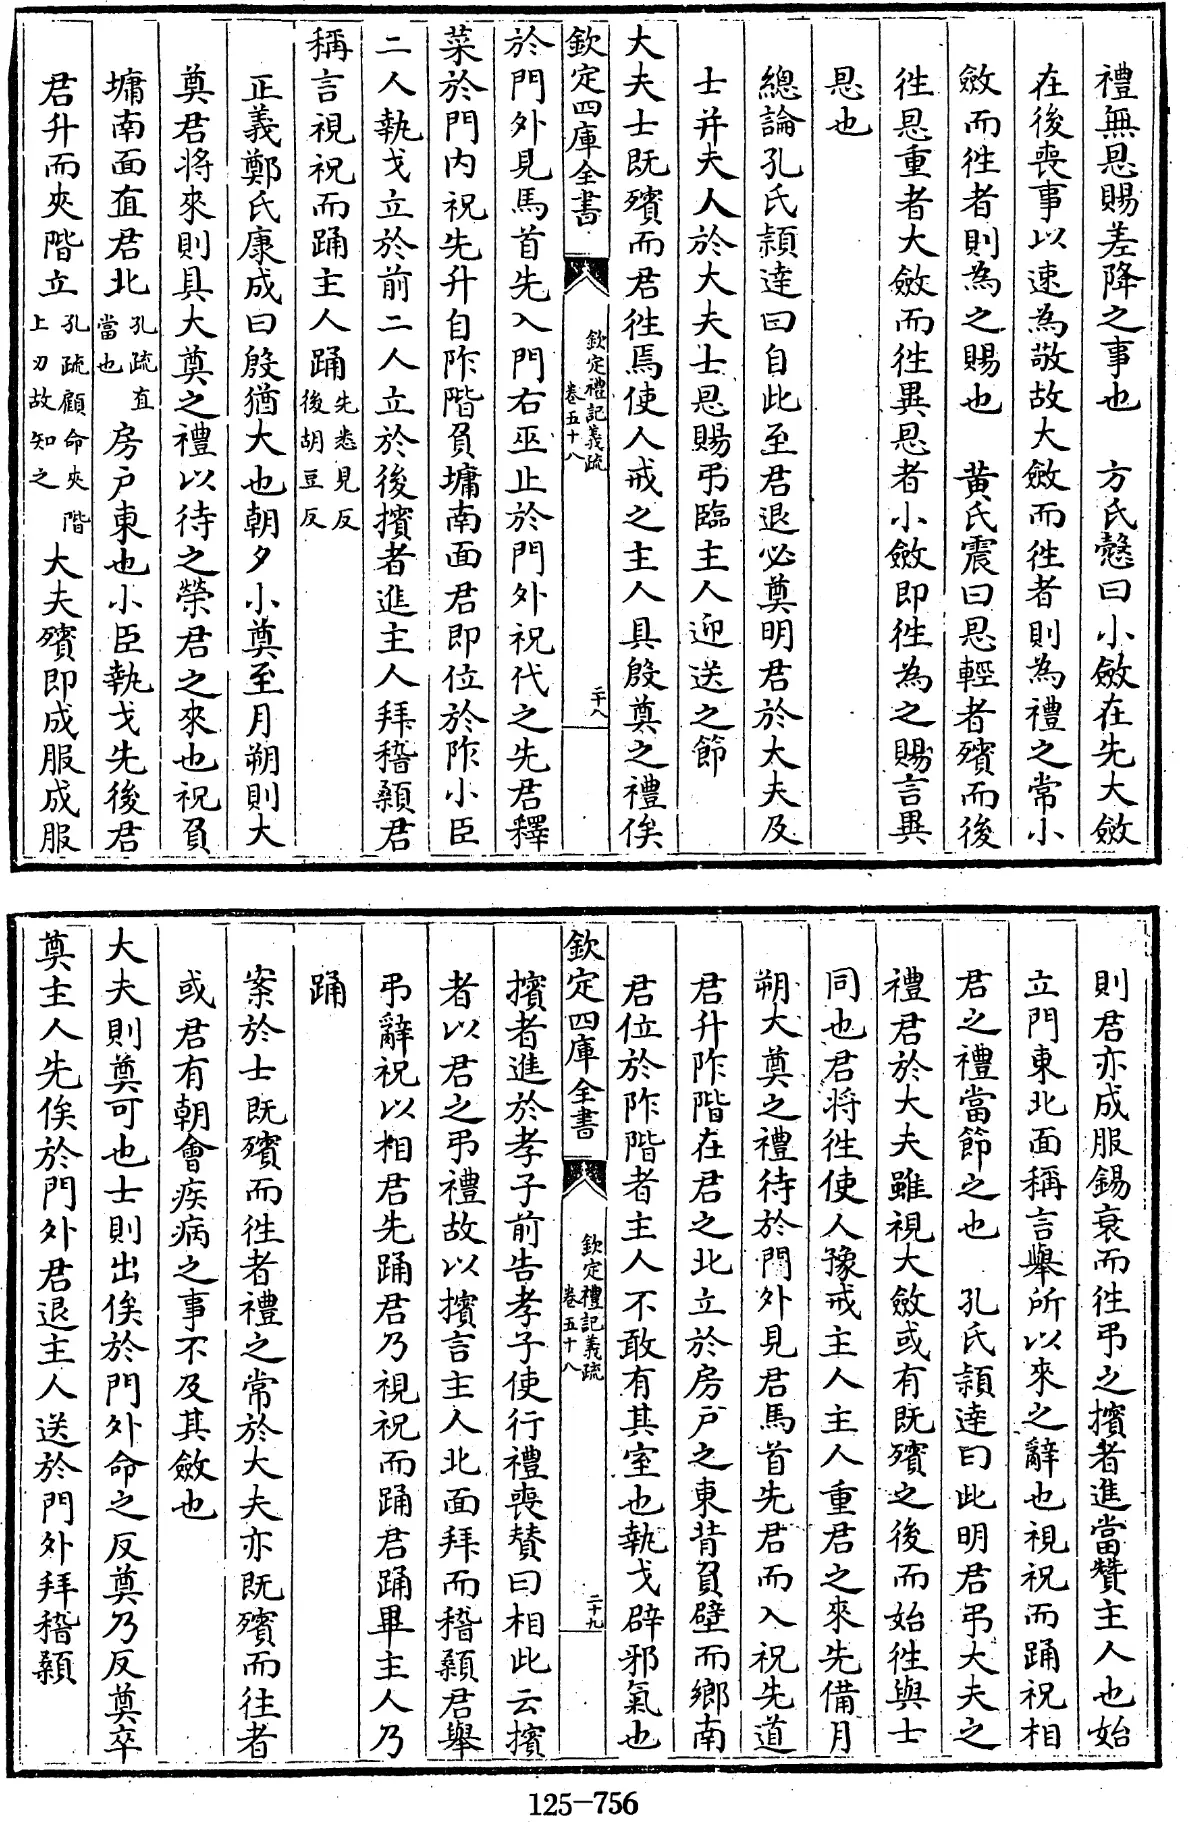 禮無恩賜差降之事也　方氏慤曰小斂在先大斂
在後喪事以速為敬故大斂而徃者則為禮之常小
斂而徃者則為之賜也　黄氏震曰恩輕者殯而後
徃恩重者大斂而徃異恩者小斂即徃為之賜言異
恩也
總論孔氏頴達曰自此至君退必奠明君於大夫及
士并夫人於大夫士恩賜弔臨主人迎送之節
大夫士既殯而君徃焉使人戒之主人具殷奠之禮俟
欽定四庫全書
欽定禮記義疏
卷五十八
二十八
於門外見馬首先入門右巫止於門外祝代之先君釋
菜於門内祝先升自阼階負墉南面君即位於阼小臣
二人執戈立於前二人立於後擯者進主人拜稽顙君
稱言視祝而踊主人踊先悉見反後胡豆反
正義鄭氏康成曰殷猶大也朝夕小奠至月朔則大
奠君將來則具大奠之禮以待之榮君之來也祝負
墉南面直君北孔疏直當也房户東也小臣執戈先後君
君升而夾階立孔疏顧命夾階上刃故知之大夫殯即成服成服
則君亦成服錫衰而徃弔之擯者進當贊主人也始
立門東北面稱言舉所以來之辭也視祝而踊祝相
君之禮當節之也　孔氏頴達曰此明君弔大夫之
禮君於大夫雖視大斂或有既殯之後而始徃與士
同也君將徃使人豫戒主人主人重君之來先備月
朔大奠之禮待於門外見君馬首先君而入祝先道
君升阼階在君之北立於房户之東背負壁而鄉南
君位於阼階者主人不敢有其室也執戈辟邪氣也
欽定四庫全書
欽定禮記義疏
卷五十八
二十九
擯者進於孝子前告孝子使行禮喪贊曰相此云擯
者以君之弔禮故以擯言主人北面拜而稽顙君舉
弔辭祝以相君先踊君乃視祝而踊君踊畢主人乃
踊
案於士既殯而徃者禮之常於大夫亦既殯而往者
或君有朝會疾病之事不及其斂也
大夫則奠可也士則出俟於門外命之反奠乃反奠卒
奠主人先俟於門外君退主人送於門外拜稽顙
125-756